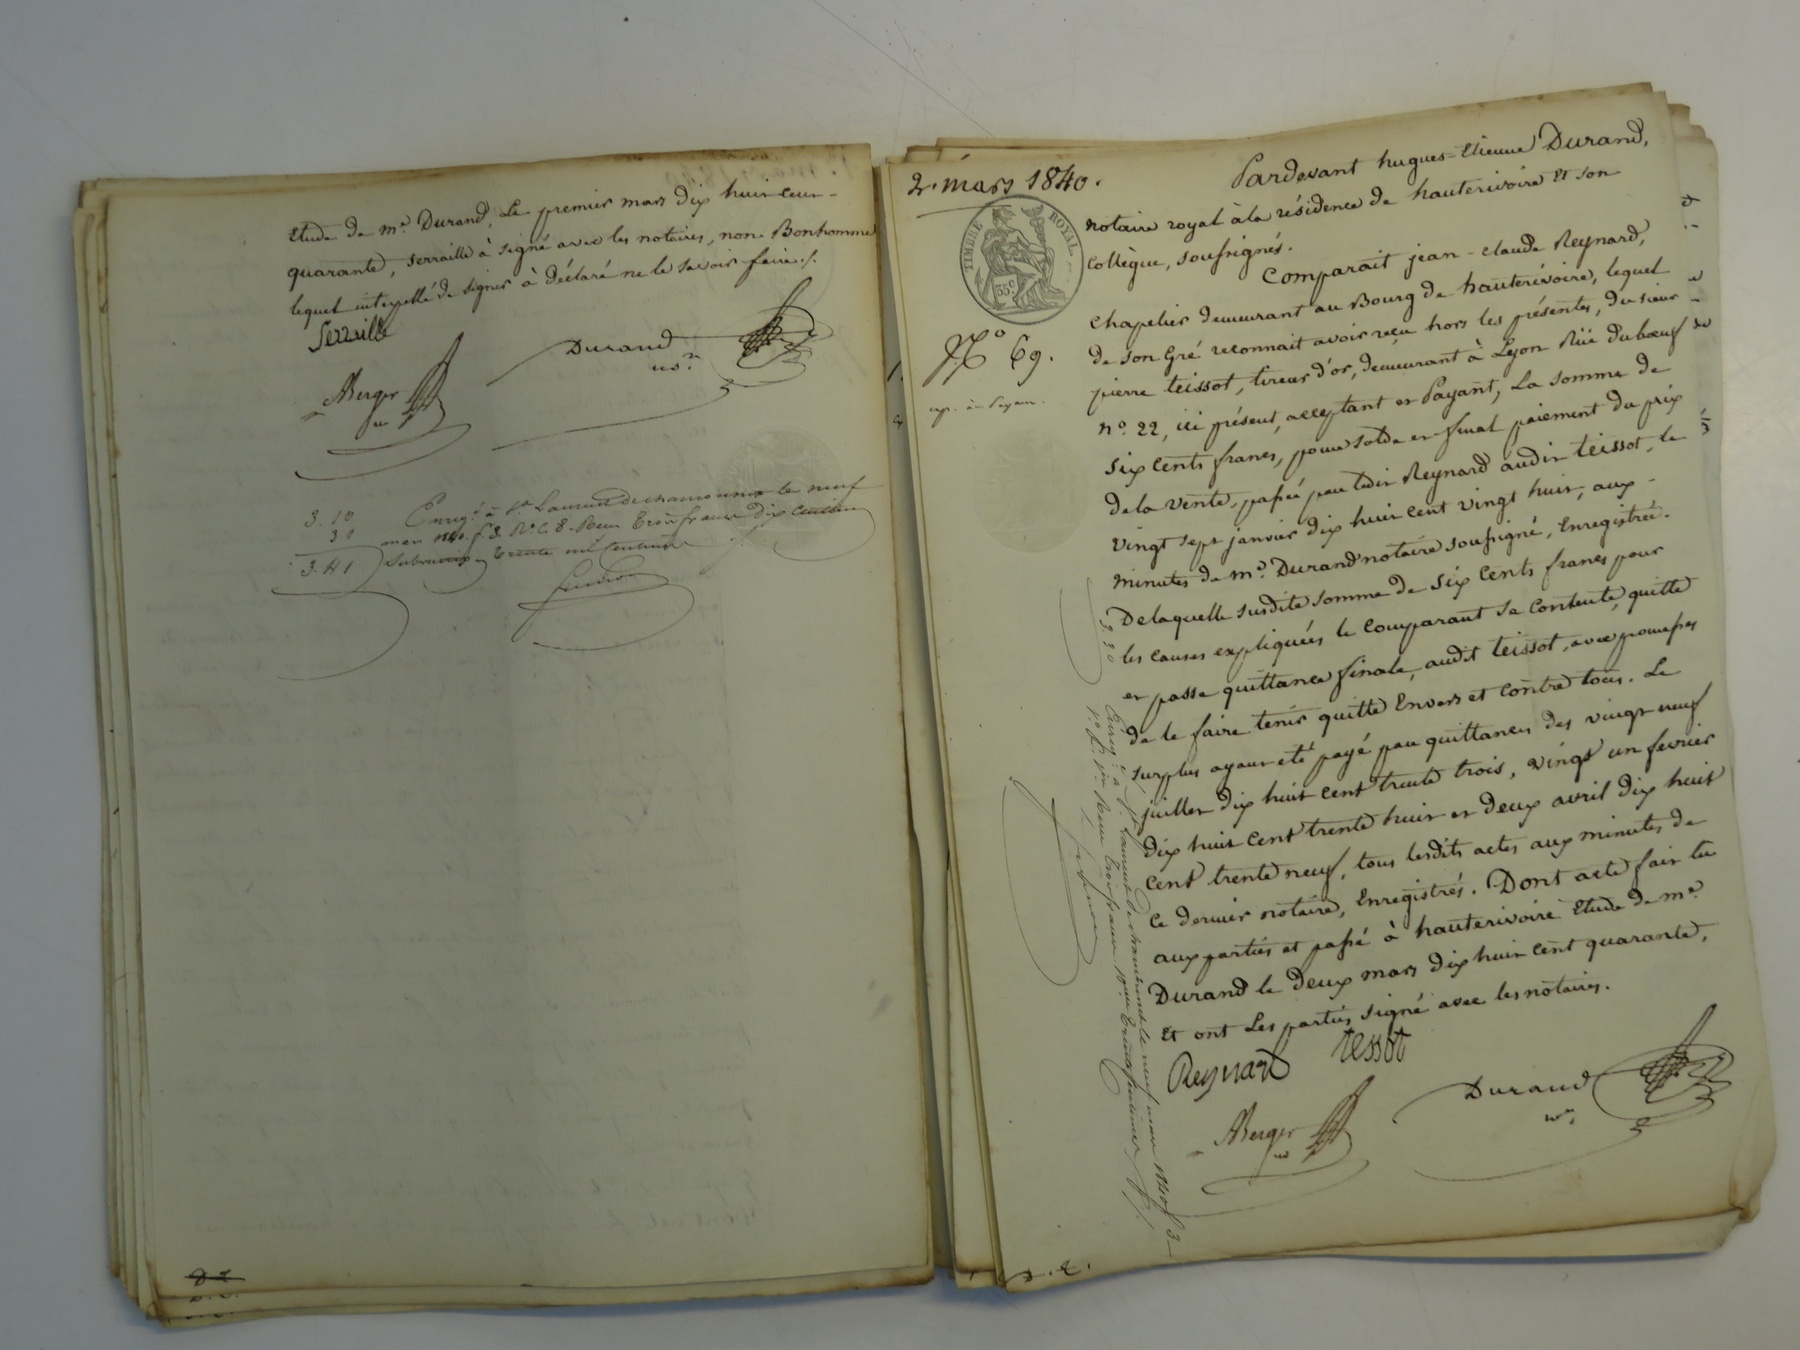 Etude de me. Durand, Le premier mars dix huit cent
quarante, serraille à signé avec les notaires, non Bonhomme
lequel interpellé de signer à déclaré ne le savoir faire./.
Serraille
Durand
nre.
ABerger
nre
3. 10 Enregé. à St. Laurent de chamousset le neuf
31 mars 1840. f. 3. Ro. C. 8. Reçu trois francs dix centimes
3. 41 Subvention trente un centimes
2. mars 1840.
TIMBRE ROYAL
35 c.
No 69.
exp. au Payeur.
Pardevant hugues-Etienne Durand,
notaire royal à la résidence de hauterivoire et son
Collègue, soussignés.
Comparait jean-claude Reynard,
Chapelier demeurant au Bourg de hauterivoire, lequel
de son Gré reconnait avoir reçu hors les présentes, du sieur
pierre teissot, tireur d'or, demeurant à Lyon Rüe du bœuf
no. 22, ici présent, acceptant et Payant, La somme de
Six Cents francs, pour solde et final paiement du prix
de la vente, passée par ledit Reynard audit teissot, le
vingt sept janvier dix huit cent vingt huit, aux
minutes de me. Durand notaire soussigné, Enregistrée.
De laquelle susdite somme de six Cents francs pour
les causes expliquées le Comparant se Contente, quitte
et passe quittance finale, audit teissot, avec promesses
de le faire tenir quitte Envers et contre tous. Le
surplus ayant été payé par quittances des vingt neuf
juillet dix huit cent trente trois, vingt un fevrier
dix huit cent trente huit et deux avril dix huit
cent trente neuf, tous lesdits actes aux minutes de
ce dernier notaire, Enregistrés. Dont acte fait lu
aux parties et passé à hauterivoire Etude de me.
Durand le deux mars dix huit cent quarante,
Et ont Les parties signé avec les notaires.
Reynard
tessot
ABerger
Durand
nre.
3. 30
Enregé. à St. Laurent de chamousset le neuf mars 1840 f. 3
Reçu trois francs trente centimes